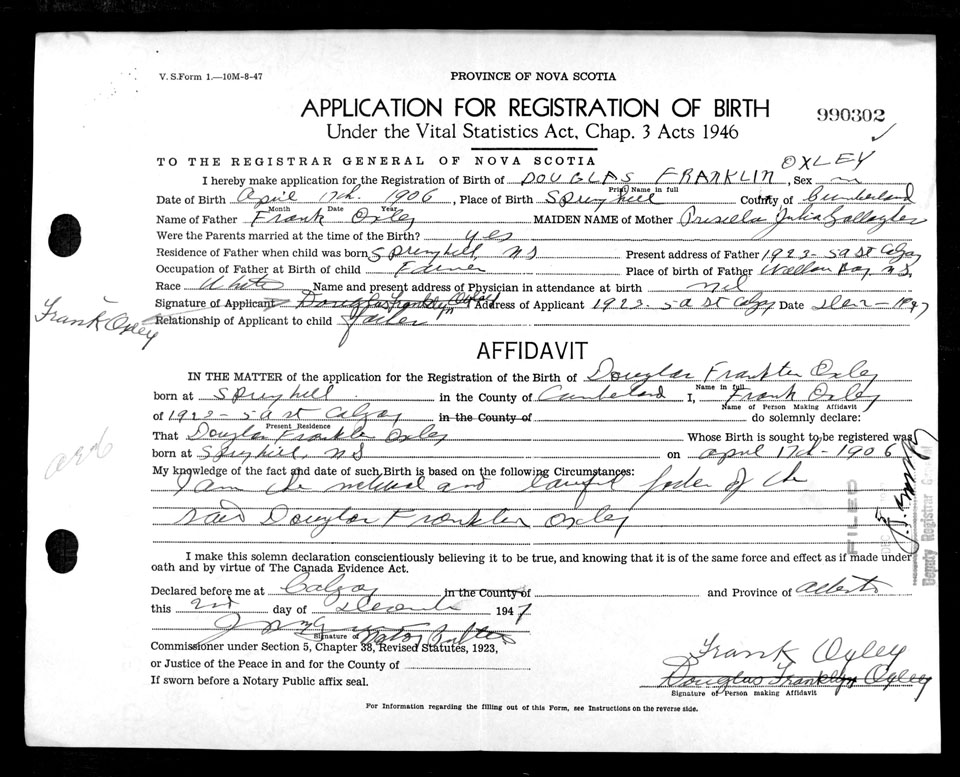 V. S. Form 1.—10M-8-47
PROVINCE OF NOVA SCOTIA
APPLICATION FOR REGISTRATION OF BIRTH
990302
Under the Vital Statistics Act, Chap. 3 Acts 1946
TO THE REGISTRAR GENERAL OF NOVA SCOTIA
OXLEY
I hereby make application for the Registration of Birth of DOUGLAS FRANKLIN, Sex m
Print Name in full
Date of Birth April 17th. 1906, Place of Birth Springhill County of Cumberland
Month Date Year
Name of Father Frank Oxley MAIDEN NAME of Mother Priscilla Julia Gallagher
Were the Parents married at the time of the Birth? yes
Residence of Father when child was born Springhill, NS Present address of Father 1923-5A St Calgary
Occupation of Father at Birth of child Farmer Place of birth of Father Wallace Bay, N.S.
Race White Name and present address of Physician in attendance at birth nil
Signature of Applicant Douglas Franklyn Oxley Address of Applicant 1923. 5A St Calgary Date Dec - 1947
Frank Oxley
Relationship of Applicant to child father
AFFIDAVIT
IN THE MATTER of the application for the Registration of the Birth of Douglas Franklin Oxley
Name in full
born at Springhill in the County of Cumberland I, Frank Oxley
Name of Person Making Affidavit
of 1923-5A St Calgary in the County of do solemnly declare:
Present Residence
That Douglas Franklin Oxley Whose Birth is sought to be registered was
born at Springhill, NS on April 17th - 1906
My knowledge of the fact and date of such Birth is based on the following Circumstances:
I am the natural and lawful father of the
said Douglas Franklin Oxley
FILED
Deputy Registrar General
I make this solemn declaration conscientiously believing it to be true, and knowing that it is of the same force and effect as if made under
oath and by virtue of The Canada Evidence Act.
Declared before me at Calgary in the County of and Province of Alberta
this 2nd day of December 1947
Signature of Notary Public
Commissioner under Section 5, Chapter 38, Revised Statutes, 1923,
or Justice of the Peace in and for the County of
If sworn before a Notary Public affix seal.
Frank Oxley
Douglas Franklyn Oxley
Signature of Person making Affidavit
For Information regarding the filling out of this Form, see Instructions on the reverse side.